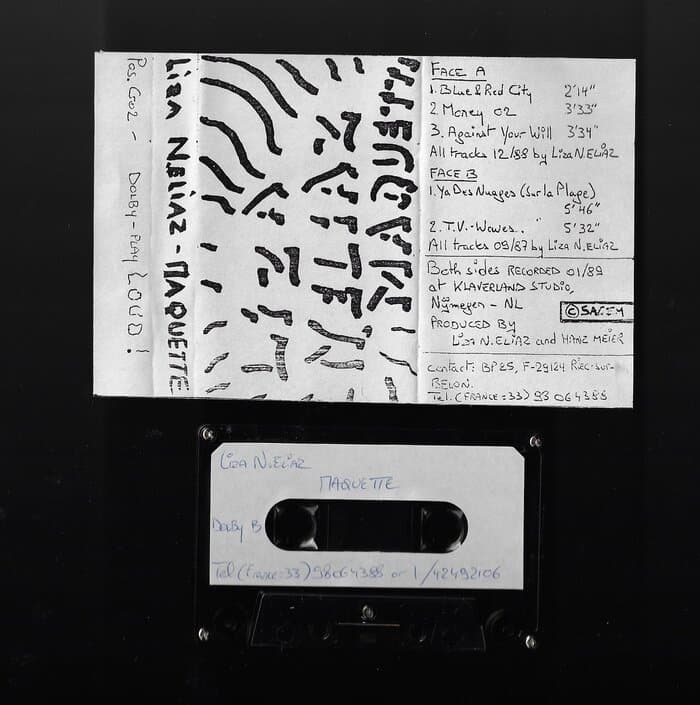 Pos. CrO2 - DOLBY - PLAY LOUD!
Liza N.Eliaz - MAQUETTE
LIZA N.ELIAZ
MAQUETTE
FACE A
1. Blue & Red City 2'14"
2. Money 02 3'33"
3. Against Your Will 3'34"
All tracks 12/88 by Liza N.ELIAZ
FACE B
1. Ya Des Nuages (Sur la Plage)
5'46"
2. T.V.-Waves.. " 5'32"
All tracks 09/87 by Liza N.ELIAZ
Both sides RECORDED 01/89
at KLAVERLAND STUDIO,
Nijmegen - NL
©SACEM
PRODUCED BY
Liza N.ELIAZ and HANZ MEIER
contact: BP25, F-29124 Riec-sur-
BELON.
Tel. (FRANCE=33) 98 064388
Liza N.Eliaz
MAQUETTE
Dolby B
Tel (France=33) 98064388 or 1/42492106